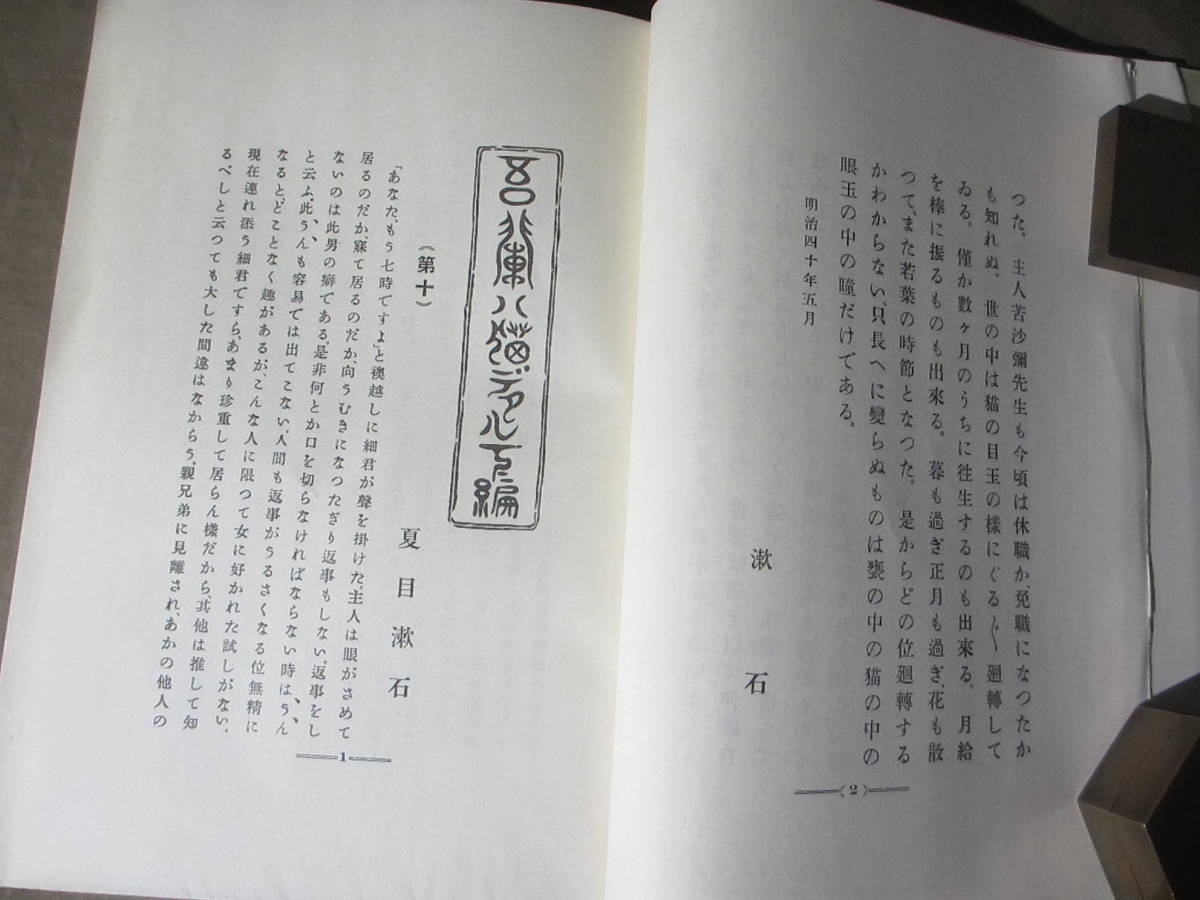 つた。主人苦沙彌先生も今頃は休職か、免職になつたか
も知れぬ。世の中は猫の目玉の樣にぐる〱廻轉して
ゐる。僅か數ヶ月のうちに徃生するのも出來る。月給
を棒に振るものも出來る。暮も過ぎ正月も過ぎ、花も散
つて、また若葉の時節となつた。是からどの位廻轉する
かわからない、只長へに變らぬものは甕の中の猫の中の
眼玉の中の瞳だけである。
明治四十年五月
漱石
(2)
吾輩ハ猫デアル下編
夏目漱石
(第十)
「あなた、もう七時ですよ」と襖越しに細君が聲を掛けた。主人は眼がさめて
居るのだか、寐て居るのだか、向うむきになつたぎり返事もしない。返事をし
ないのは此男の癖である。是非何とか口を切らなければならない時はうん
と云ふ。此うんも容易では出てこない。人間も返事がうるさくなる位無精に
なると、どことなく趣があるが、こんな人に限つて女に好かれた試しがない。
現在連れ添う細君ですら、あまり珍重して居らん樣だから、其他は推して知
るべしと云つても大した間違はなからう。親兄弟に見離され、あかの他人の
1